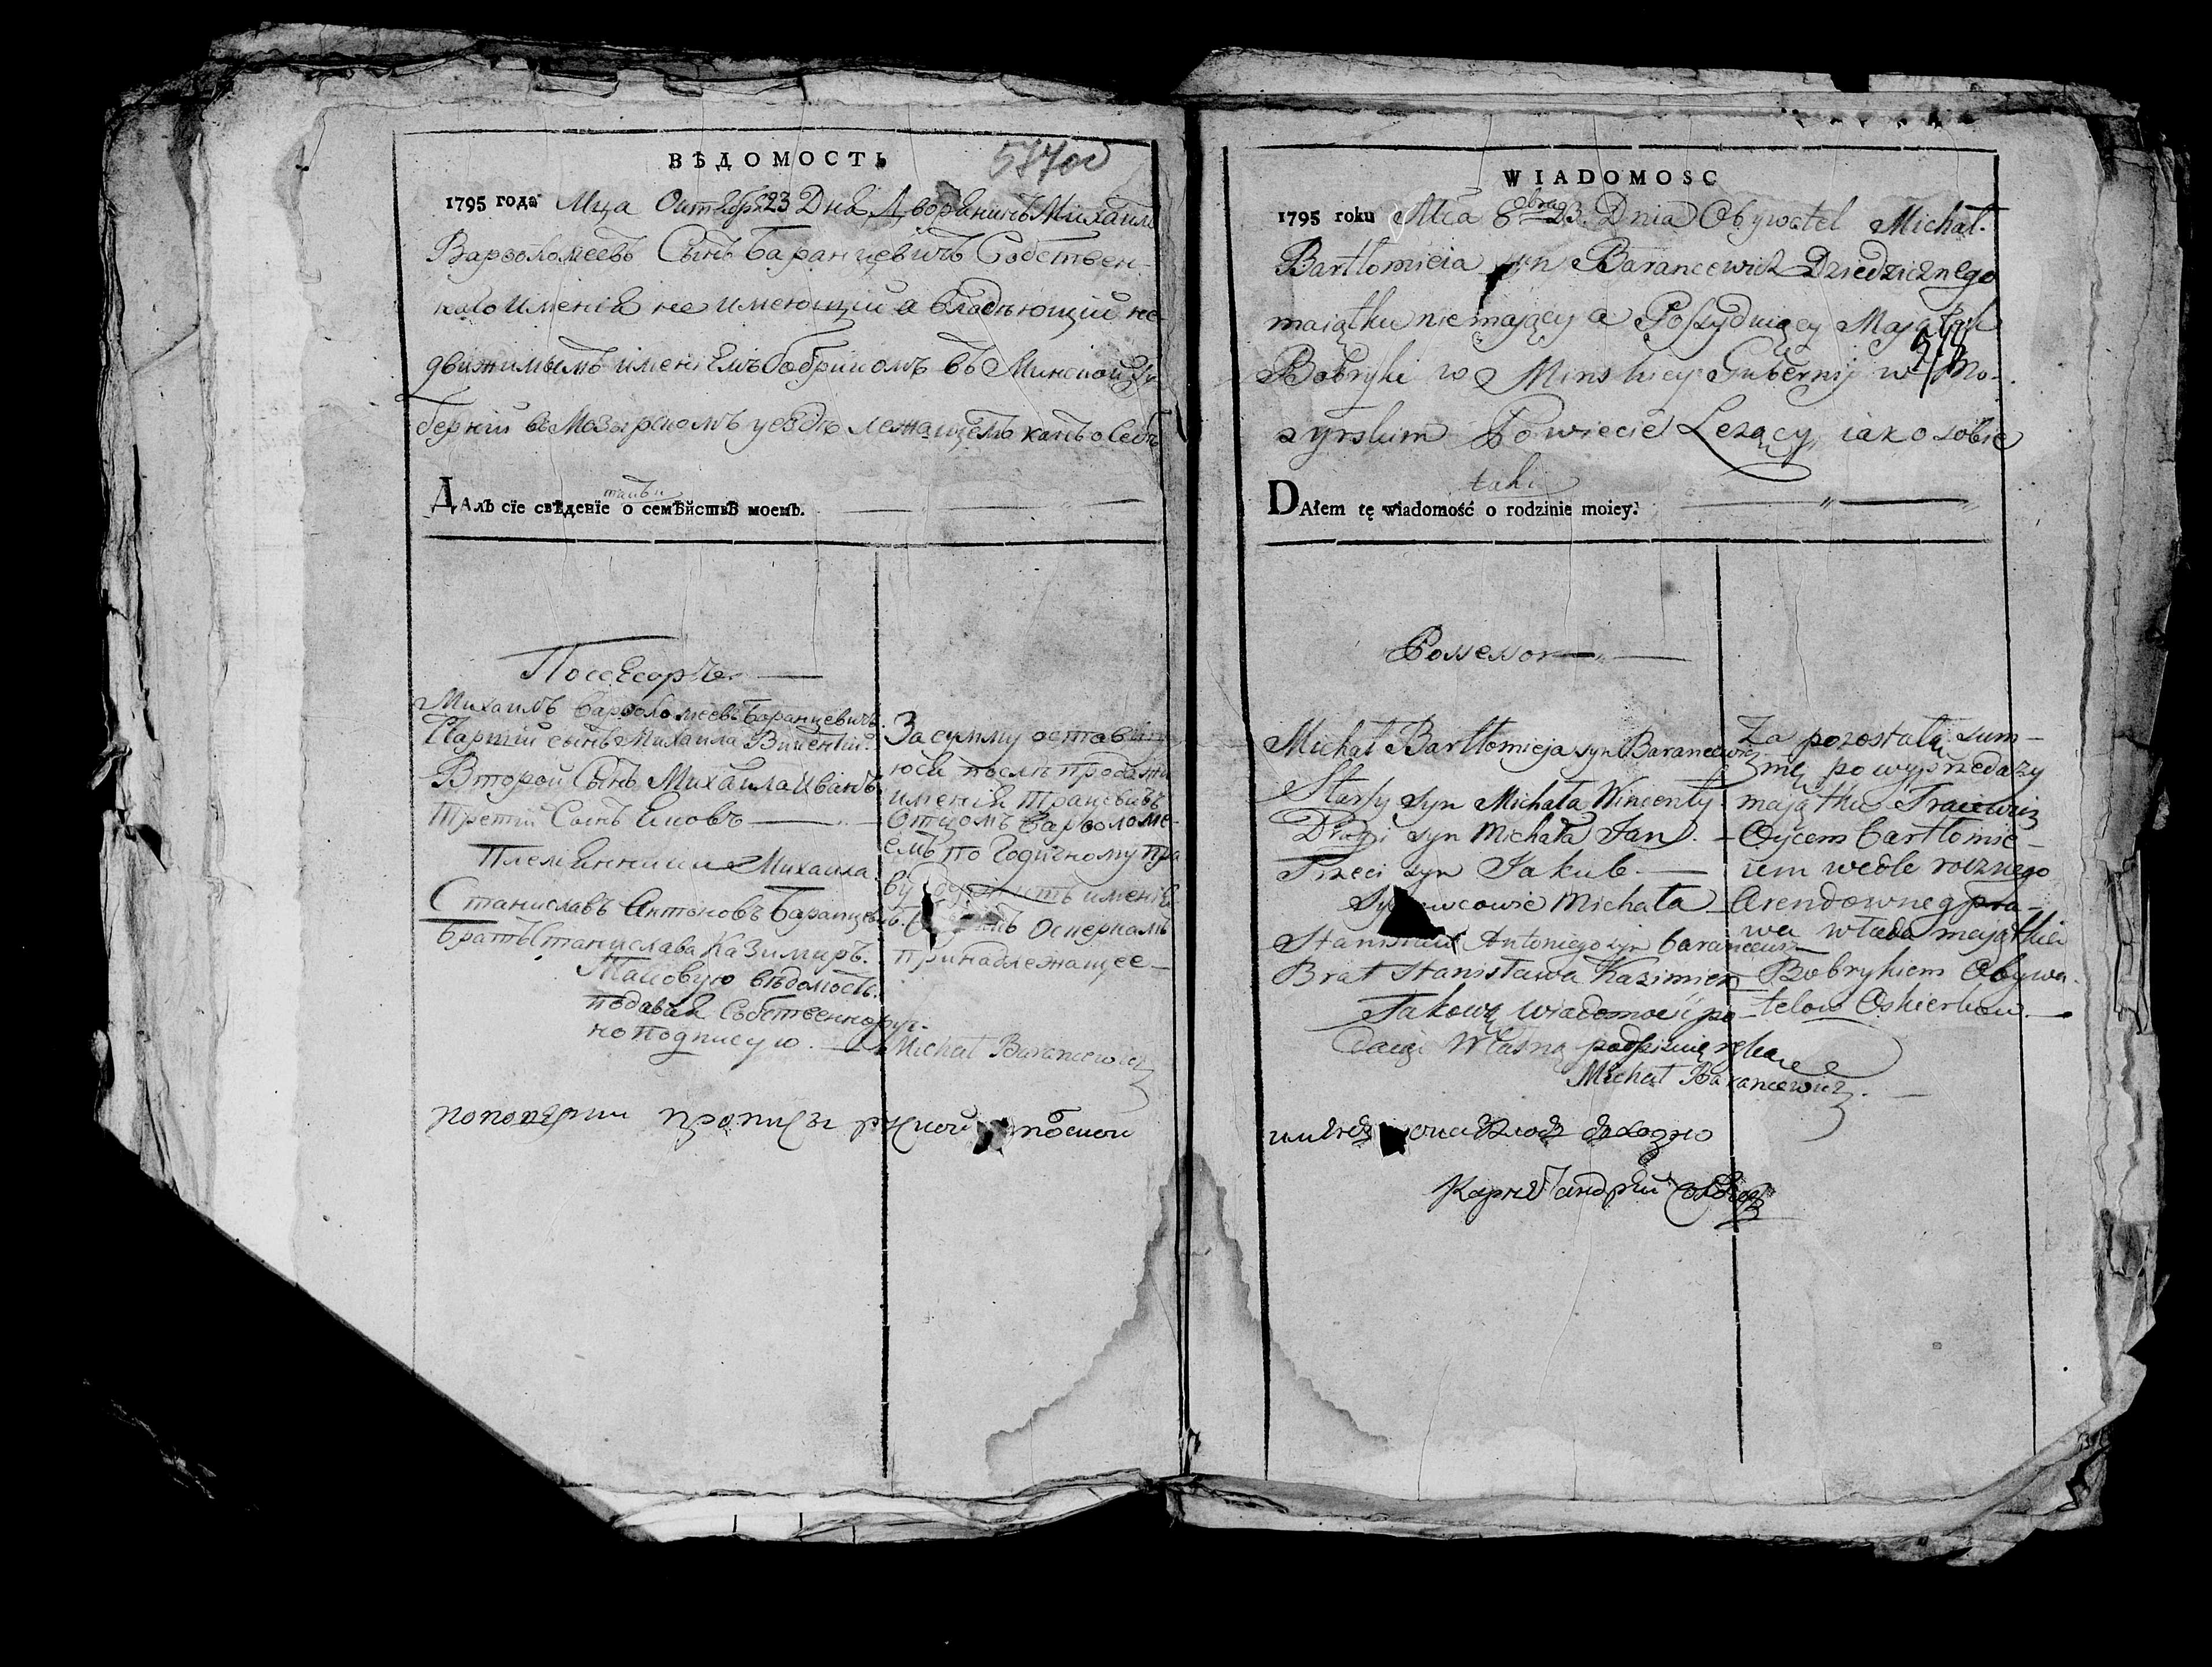 ВѢДОМОСТЬ
577 об
1795 года Мца Октября 23 Дня Дворянинъ Михаилъ
Варѳоломеевъ Сынъ Баранцевичъ Собствен-
наго Имения не имеющий а владѣющий не
движимымъ имениемъ Бобрикомъ въ Минской Гу
бернии въ Мозырскомъ уезде лежащемъ какъ о Себѣ
такъ и
ДАлъ сїе свѣденїе о семѣйствѣ моемъ.
Поссесоръ
Михаилъ Варѳоломеевъ Баранцевичъ.
Старший сынъ Михаила Викентий.
Второй Сынъ Михаила Иванъ
Третий Сынъ Яковъ
Племянники Михаила
Станиславъ Антоновъ Баранцевичъ.
Братъ Станислава Казимиръ.
Таковую вѣдомость
подавая Собственноруч-
но подписую.
За сумму оставшу
юся послѣ продажи
имения Трацевичъ
Отцомъ Варѳоломе-
емъ по Годичному пра
ву имение
Оскеркамъ
принадлежащее
Michał Barancewicz
WIADOMOSC
1795 roku Mca 8bra 23 Dnia Obywatel Michał
Bartłomieia syn Barancewicz Dziedzicznego
maiątku niemaiący a Possyduiący Maiątek
Bobryki w Minskiey Gubernij w Mo-
zyrskim Powiecie Leżący, iak o sobie
tak i
DAłem tę wiadomość o rodzinie moiey.
Possessor
Michał Bartłomieja syn Barancewicz
Starszy syn Michała Wincenty
Drugi syn Michała Jan
Trzeci syn Jakub
Synowcowie Michała
Stanisław Antoniego syn Barancewicz
Brat Stanisława Kazimierz
Takową wiadomość po-
daiąc Własną podpisuię ręką
Michał Barancewicz
Za pozostałą sum-
mę po wyprzedaży
majątku Tracewicz
Oycem Bartłomie-
iem wedle rocznego
Arendownego pra-
wa włada majątkiem
Bobrykiem Obywa-
telow Oskierkow.